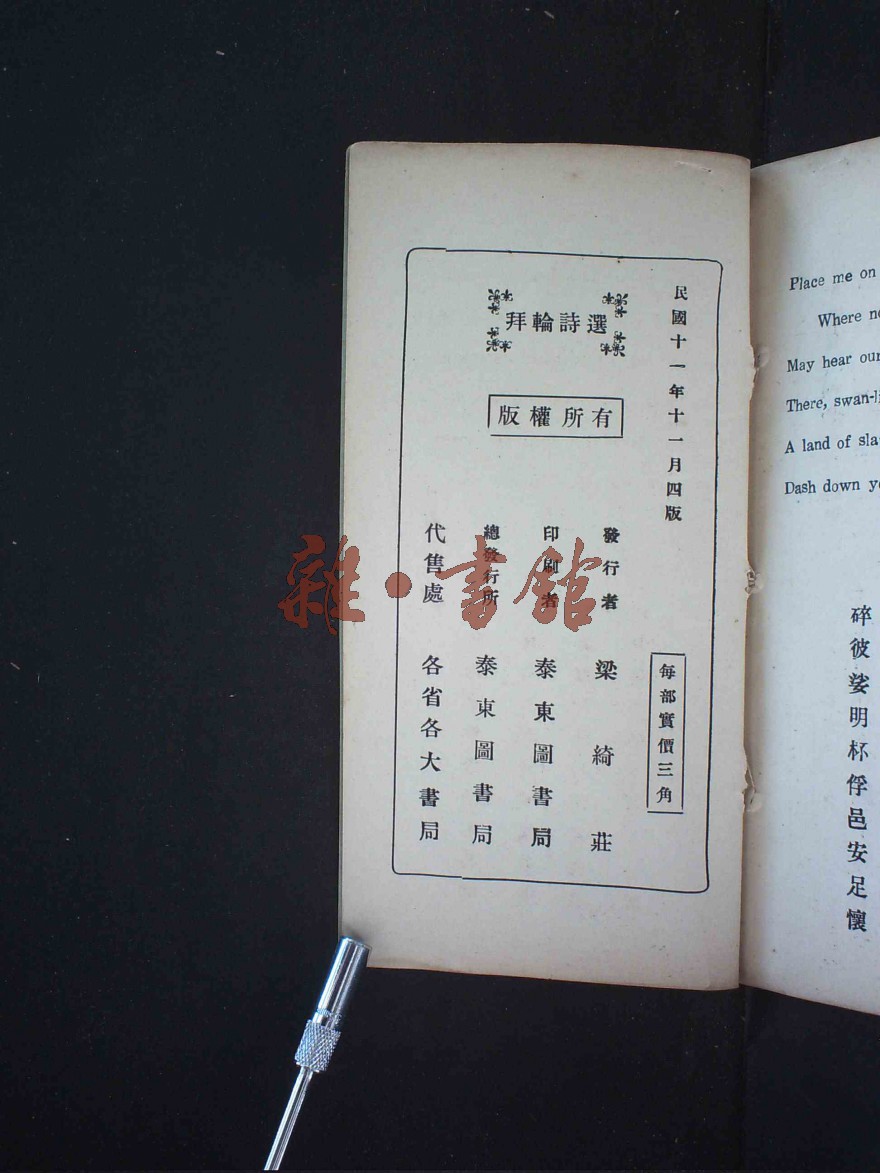 民國十一年十一月四版
拜輪詩選
版權所有
每部實價三角
發行者 梁綺莊
印刷者 泰東圖書局
總發行所 泰東圖書局
代售處 各省各大書局
雜·書館
Place me on
Where
May hear our
There,
A land of
Dash down
碎彼娑明杯俘邑安足懷